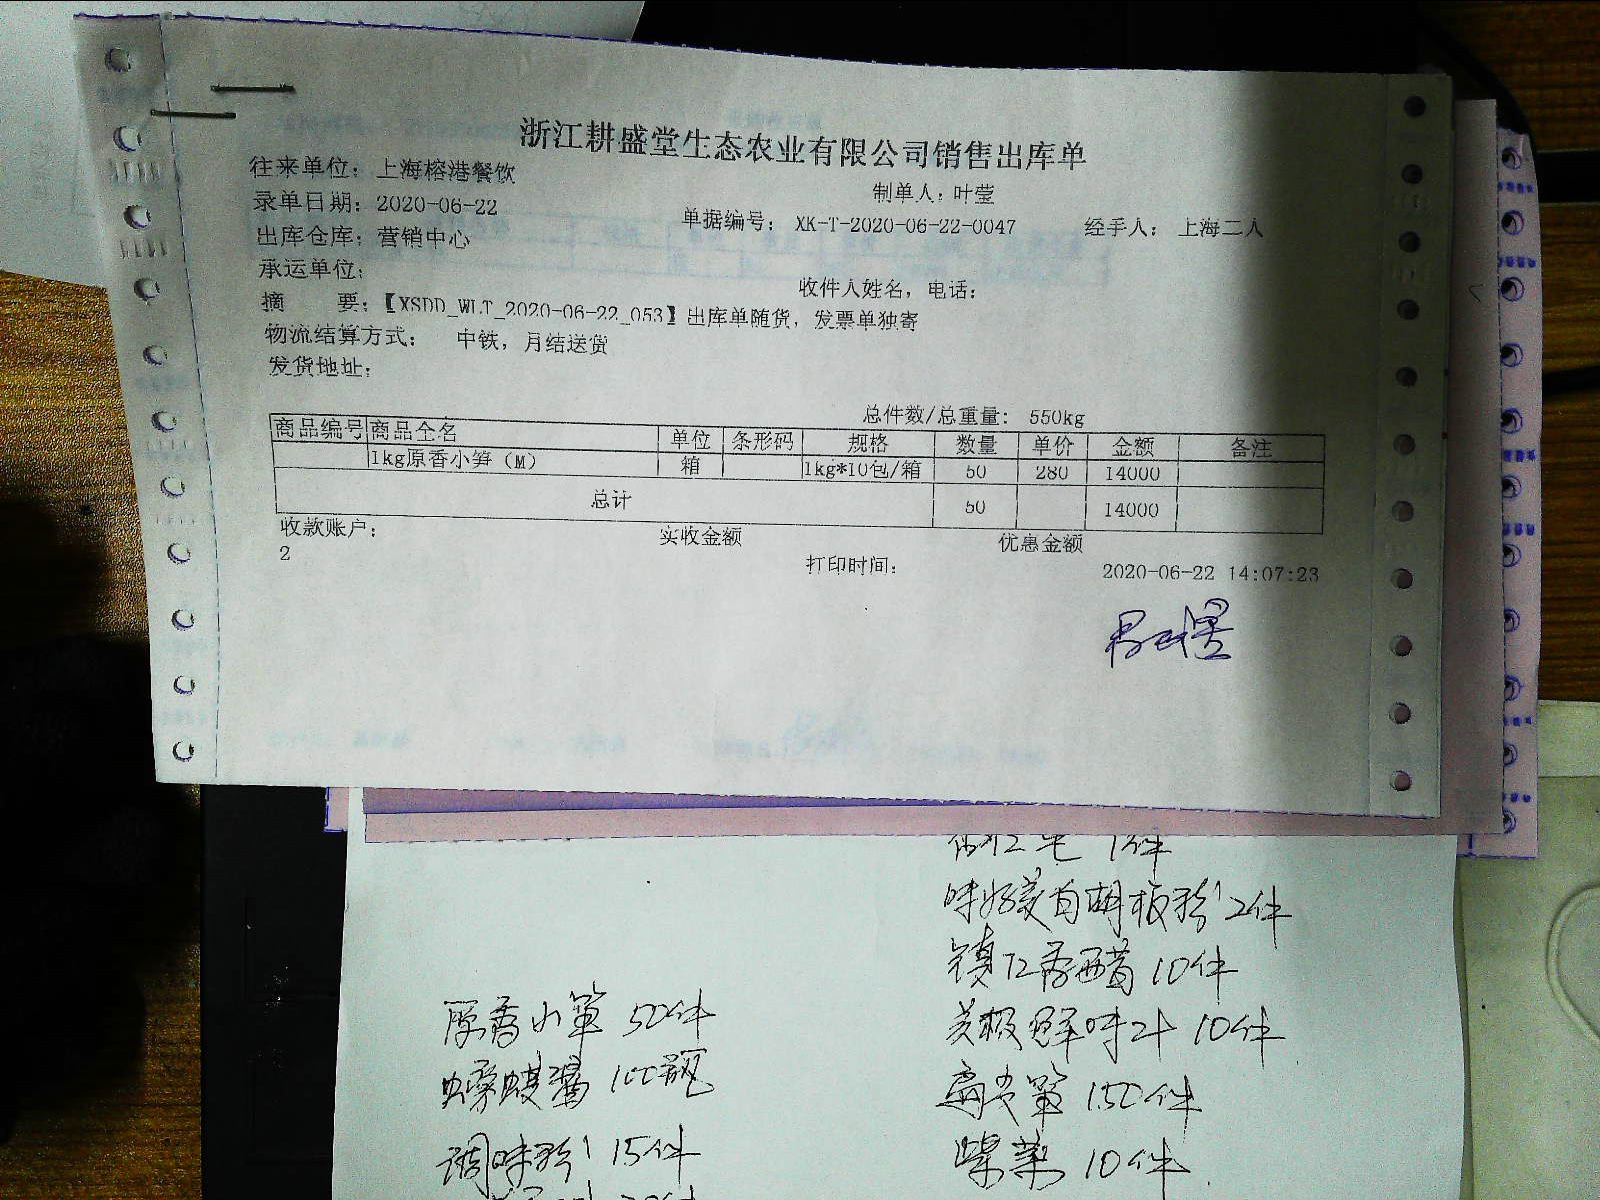 浙江耕盛堂生态农业有限公司销售出库单
往来单位：上海榕港餐饮
制单人：叶莹
录单日期：2020-06-22
单据编号： XK-T-2020-06-22-0047 经手人： 上海二人
出库仓库：营销中心
承运单位：
收件人姓名，电话：
摘 要：【XSDD_WLT_2020-06-22_053】出库单随货，发票单独寄
物流结算方式： 中铁，月结送货
发货地址：
总件数/总重量： 550kg
商品编号 商品全名 单位 条形码 规格 数量 单价 金额 备注
1kg原香小笋（M） 箱 1kg*10包/箱 50 280 14000
总计 50 14000
收款账户： 实收金额 优惠金额
2 打印时间： 2020-06-22 14:07:23
1件
味好美白胡椒粉 2件
镇江香醋 10件
原香小笋 50件
美极鲜味汁 10件
100瓶
扁尖笋 150件
调味粉 15件
紫菜 10件